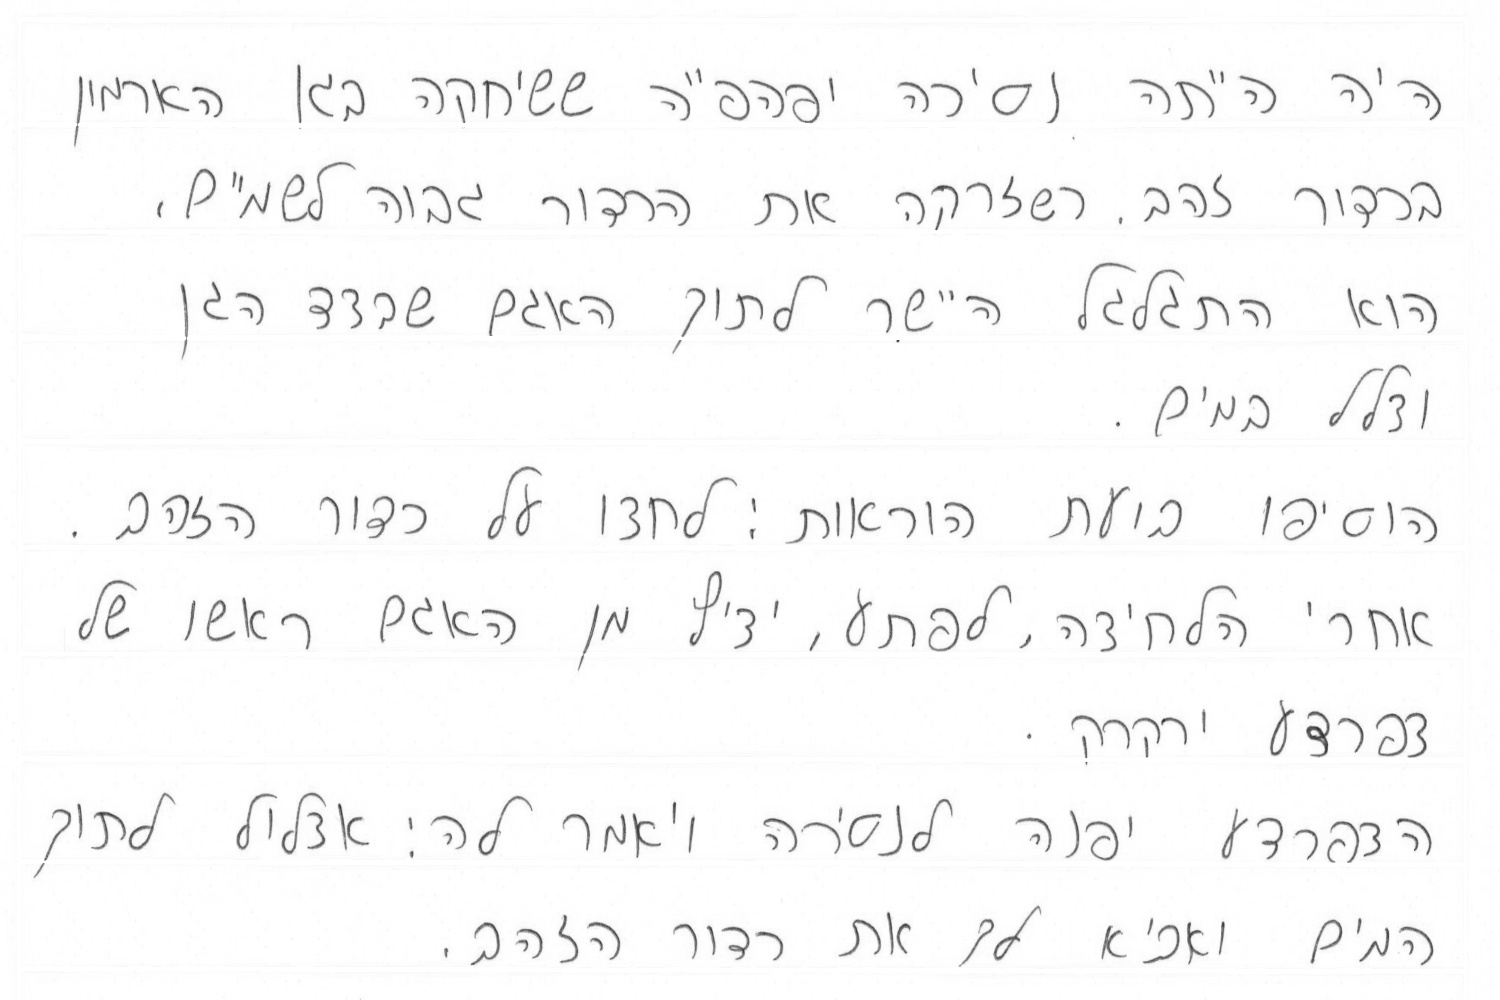 היה הייתה נסיכה יפהפייה ששיחקה בגן הארמון
בכדור זהב. כשזרקה את הכדור גבוה לשמיים,
הוא התגלגל היישר לתוך האגם שבצד הגן
וצלל במים.
הוסיפו בועת הוראות: לחצו על כדור הזהב.
אחרי הלחיצה, לפתע, יציץ מן האגם ראשו של
צפרדע ירקרק.
הצפרדע יפנה לנסיכה ויאמר לה: אצלול לתוך
המים ואביא לך את כדור הזהב.